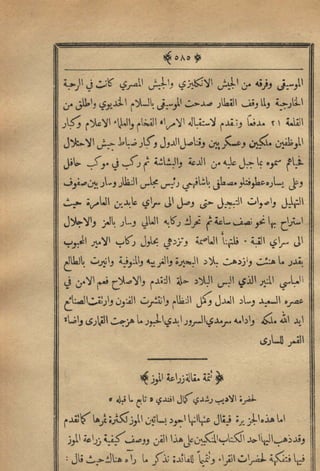 ﴿ ٥٨٥ ﴾
الموسيقى وفرقه من الجيش الانكليزي والجيش المصري كانت في الرحبة
الخارجية ولما وقف القطار صدحت الموسيقى بالسلام الخديوي واطلق من
القلعة ٢١ مدفعًا وتقدم لاستقباله الامراء الفخام والعلماء الاعلام وكبار
الموظفين ملكيين وعسكريين وقناصل الدول وكبار ضباط جيش الاحتلال
فحياهم سموه بما جبل عليه من الدعة والبشاشة ثم ركب في موكب حافل
وعلى يساره عطوفتلو مصطفى باشا فهمي رئيس مجلس النظار وسار بين صفوف
التهليل واصوات التبجيل حتى وصل الى سراي عابدين العامرة حيث
استراح بها نحو نصف ساعة ثم تحرك ركابه العالي وسار بالعز والاجلال
الى سراي القبة . فلتهنأ العاصمة وتزدهي بحلول ركاب الامير المحبوب
بقدر ما هنئت وازدهت بلاد البحيرة والغربيه والمنوفية وانيرت بالطالع
العباسي المنير الذي البس البلاد حلة التقدم والاصلاح فعم الامن في
عصره السعيد وساد العدل وكمل النظام وانتشرت الفنون وارتقت الصنائع
ايد الله ملكه وادامه سرمدي السرور ابدي الحبور ما هزجت القمارى واضاء
القمر للسارى
﴿ تتمة مقالة زراعة الموز ﴾
لحضرة الاديب رشدي كمال افندي « تابع ما قبله »
اما هذه الجزيرة فيقال عنها انها اجود بساتين الموز لكثرة ثمرها كما تقدم
وقد ذهب اليها احد الكتاب المتكيين على هذا الفن ووصف كيفية زراعة الموز
فيها فتفكهة لحضرات القراء وتتميمًا للفائدة نذكر ما رآه هناك حيث قال :